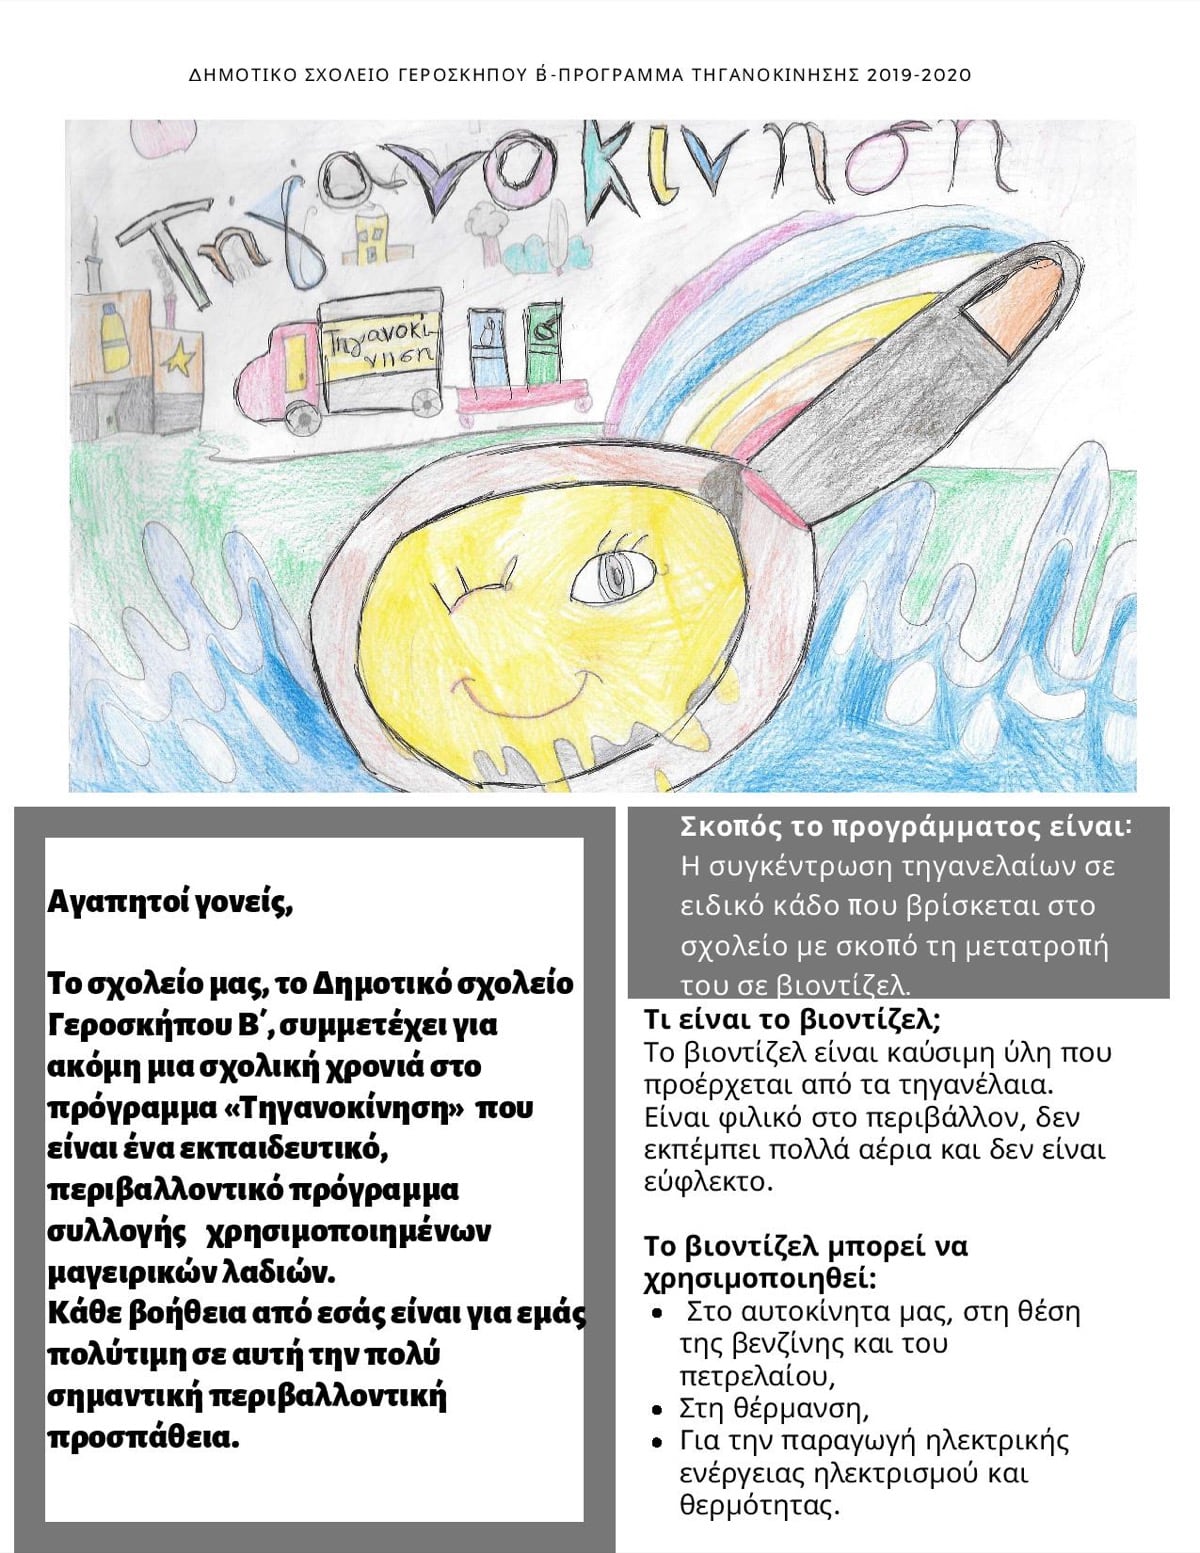 ΔΗΜΟΤΙΚΟ ΣΧΟΛΕΙΟ ΓΕΡΟΣΚΗΠΟΥ Β́-ΠΡΟΓΡΑΜΜΑ ΤΗΓΑΝΟΚΙΝΗΣΗΣ 2019-2020
Τηγανοκίνηση
Τηγανοκί-
νηση
Αγαπητοί γονείς,
Το σχολείο μας, το Δημοτικό σχολείο
Γεροσκήπου Β΄, συμμετέχει για
ακόμη μια σχολική χρονιά στο
πρόγραμμα «Τηγανοκίνηση» που
είναι ένα εκπαιδευτικό,
περιβαλλοντικό πρόγραμμα
συλλογής χρησιμοποιημένων
μαγειρικών λαδιών.
Κάθε βοήθεια από εσάς είναι για εμάς
πολύτιμη σε αυτή την πολύ
σημαντική περιβαλλοντική
προσπάθεια.
Σκοπός το προγράμματος είναι:
Η συγκέντρωση τηγανελαίων σε
ειδικό κάδο που βρίσκεται στο
σχολείο με σκοπό τη μετατροπή
του σε βιοντίζελ.
Τι είναι το βιοντίζελ;
Το βιοντίζελ είναι καύσιμη ύλη που
προέρχεται από τα τηγανέλαια.
Είναι φιλικό στο περιβάλλον, δεν
εκπέμπει πολλά αέρια και δεν είναι
εύφλεκτο.
Το βιοντίζελ μπορεί να
χρησιμοποιηθεί:
• Στο αυτοκίνητα μας, στη θέση
της βενζίνης και του
πετρελαίου,
• Στη θέρμανση,
• Για την παραγωγή ηλεκτρικής
ενέργειας ηλεκτρισμού και
θερμότητας.